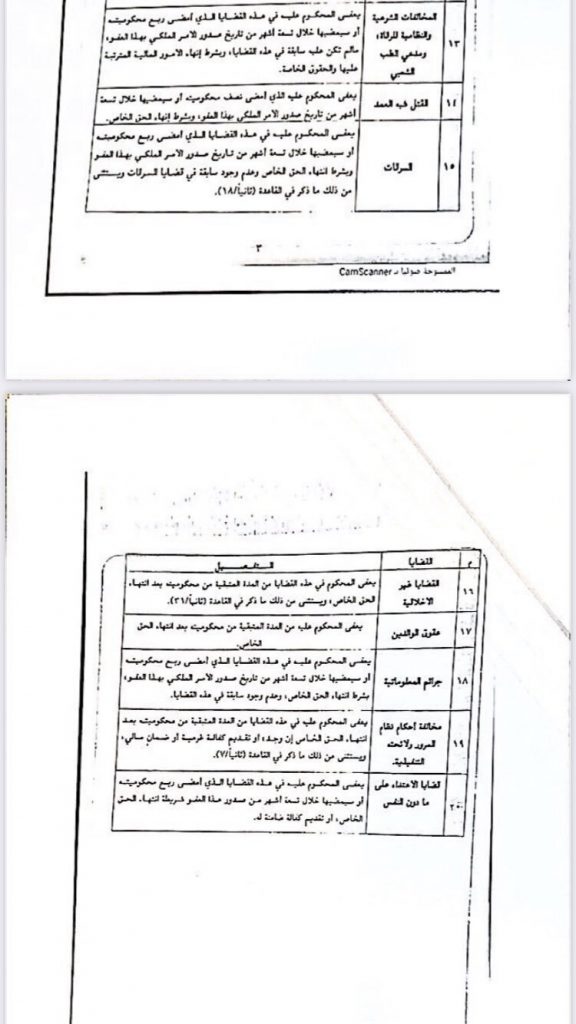 المخالفات الشرعية
والنظامية للرقاة،
ومدعي الطب
الشعبي
١٣
يعفى المحكوم عليه في هذه القضايا الذي أمضى ربع محكوميته
أو سيمضيها خلال تسعة أشهر من تاريخ صدور الأمر الملكي بهذا العفو،
مالم تكن عليه سابقة في هذه القضايا، وبشرط إنهاء الأمور المالية المترتبة
عليها والحقوق الخاصة.
١٤
القتل شبه العمد
يعفى المحكوم عليه الذي أمضى نصف محكوميته أو سيمضيها خلال تسعة
أشهر من تاريخ صدور الأمر الملكي بهذا العفو، وبشرط إنهاء الحق الخاص.
١٥
السرقات
يعفى المحكوم عليه في هذه القضايا الذي أمضى ربع محكوميته
أو سيمضيها خلال تسعة أشهر من تاريخ صدور الأمر الملكي بهذا العفو
وبشرط انتهاء الحق الخاص وعدم وجود سابقة في قضايا السرقات ويستثنى
من ذلك ما ذكر في القاعدة (ثانياً/١٨).
٣
الممسوحة ضوئيا بـ CamScanner
م القضايا التفصيل
١٦
القضايا غير
الاخلاقية
يعفى المحكوم في هذه القضايا من المدة المتبقية من محكوميته بعد انتهاء
الحق الخاص، ويستثنى من ذلك ما ذكر في القاعدة (ثانياً/٣١).
١٧
عقوق الوالدين
يعفى المحكوم عليه من المدة المتبقية من محكوميته بعد انتهاء الحق
الخاص.
١٨
جرائم المعلوماتية
يعفى المحكوم عليه في هذه القضايا الذي أمضى ربع محكوميته
أو سيمضيها خلال تسعة أشهر من تاريخ صدور الأمر الملكي بهذا العفو،
بشرط انتهاء الحق الخاص، وعدم وجود سابقة في هذه القضايا.
١٩
مخالفة أحكام نظام
المرور ولائحته
التنفيذية.
يعفى المحكوم عليه في هذه القضايا من المدة المتبقية من محكوميته بعد
انتهاء الحق الخاص إن وجد، أو تقديم كفالة غرمية أو ضمان مالي،
ويستثنى من ذلك ما ذكر في القاعدة (ثانياً/٧).
٢٠
قضايا الاعتداء على
ما دون النفس
يعفى المحكوم عليه في هذه القضايا الذي أمضى ربع محكوميته
أو سيمضيها خلال تسعة أشهر من صدور هذا العفو شريطة انتهاء الحق
الخاص، أو تقديم كفالة ضامنة له.